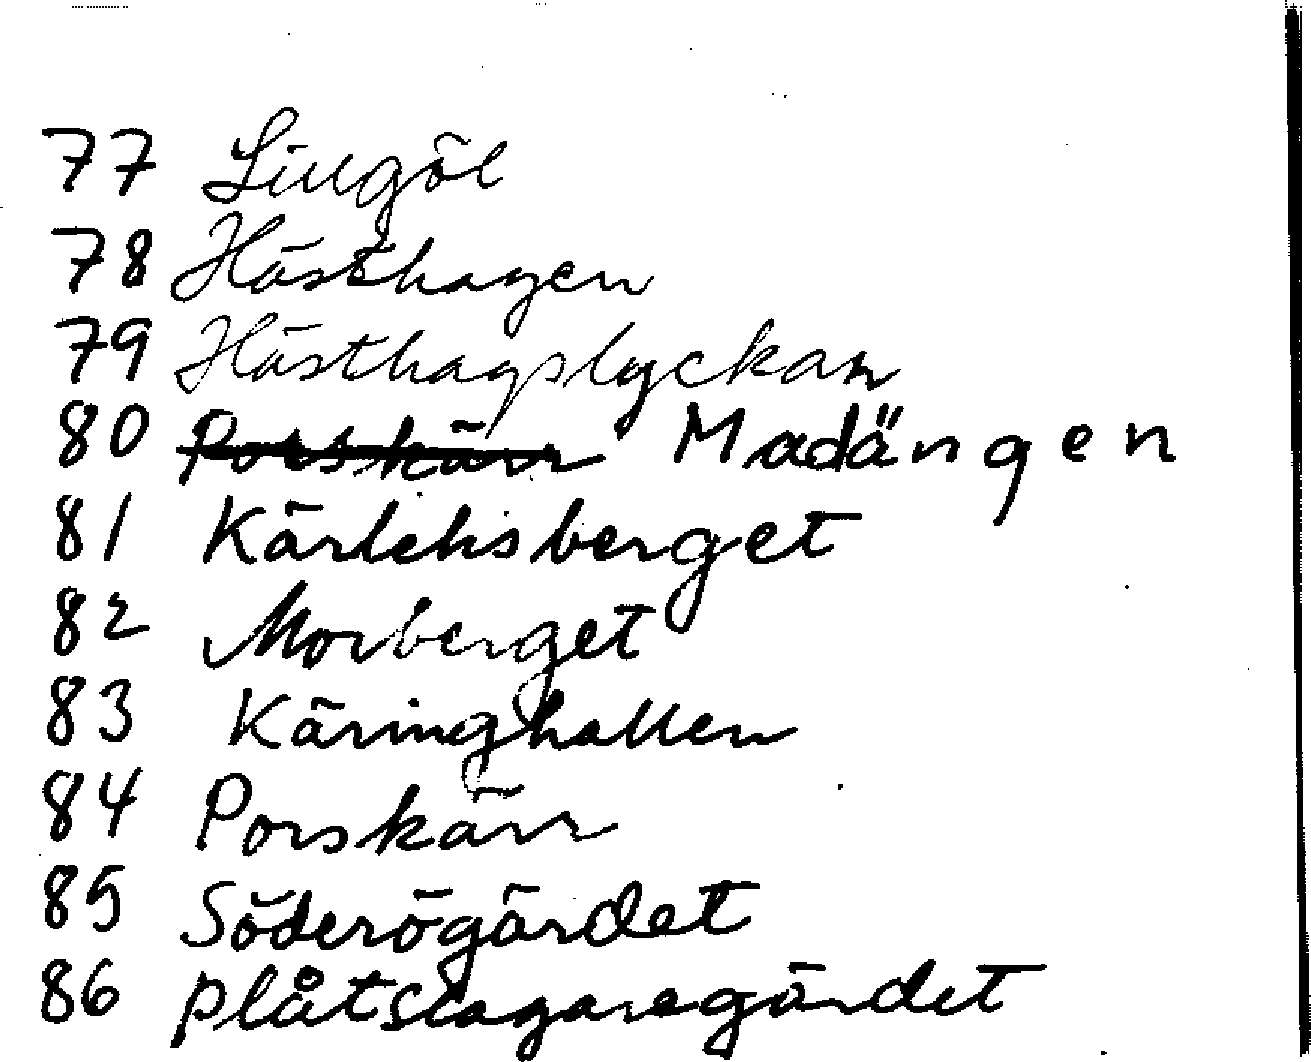 77 Lillgöl
78 Hästhagen
79 Hästhagslyckan
80 Porskärr Madängen
81 Kärleksberget
82 Morberget
83 Käringhallen
84 Porskärr
85 Söderögärdet
86 plåtslagaregärdet